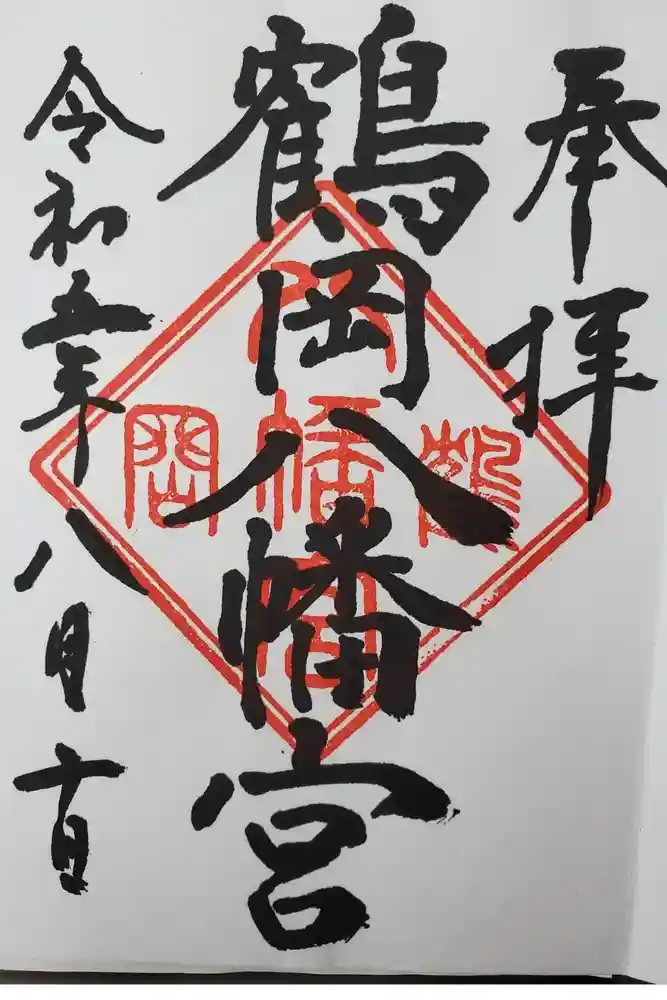 奉拝
鶴岡八幡宮
令和五年八月十日
鶴
八幡宮
岡